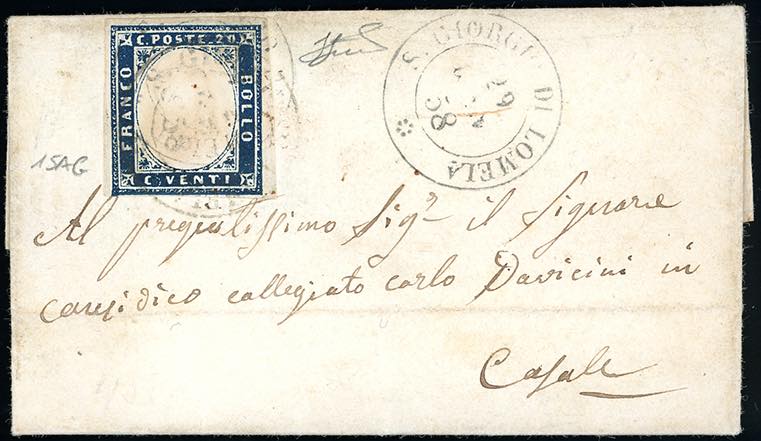 C. POSTE. 20
FRANCO
BOLLO
C. VENTI
S. GIORGIO DI LOMELA
29
58
1SAG
Al pregiatissimo Sigr il Signore
causidico collegiato carlo Davicini in
Casale